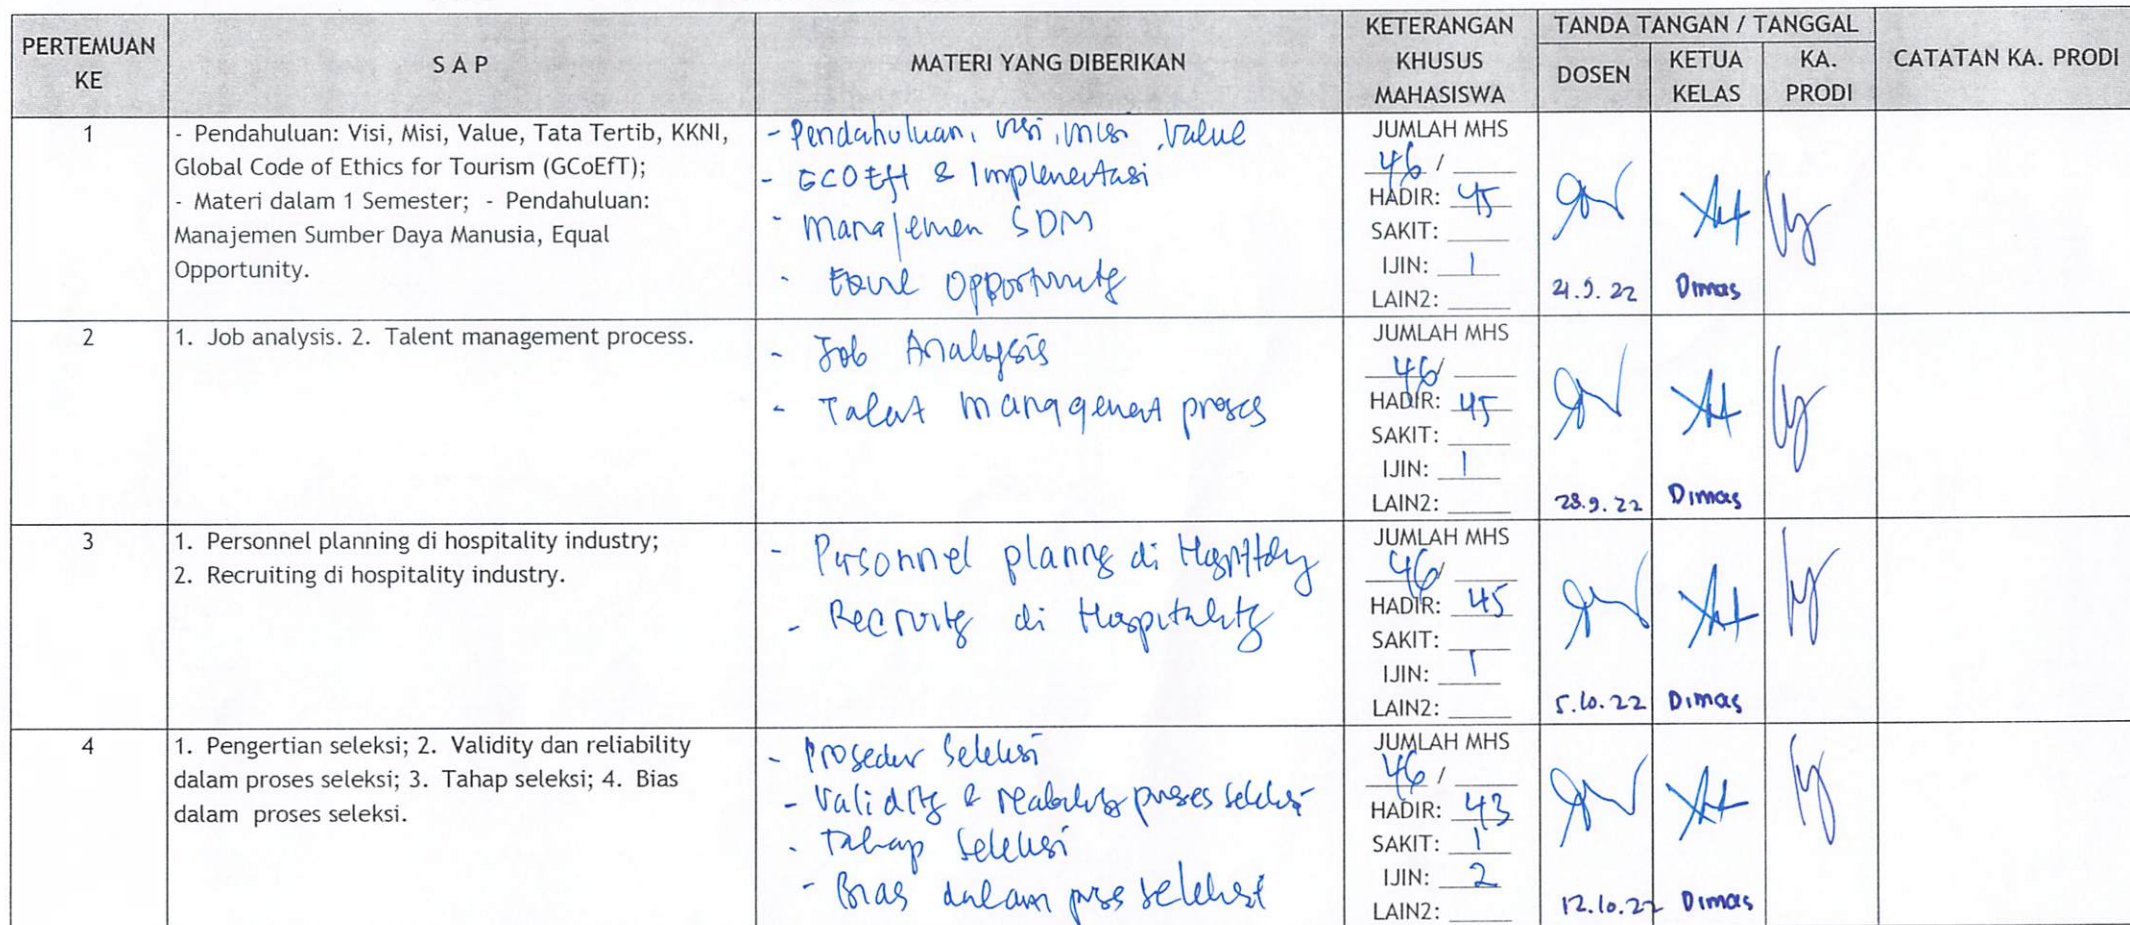 PERTEMUAN KE
S A P
MATERI YANG DIBERIKAN
KETERANGAN KHUSUS MAHASISWA
TANDA TANGAN / TANGGAL
DOSEN
KETUA KELAS
KA. PRODI
CATATAN KA. PRODI
1
- Pendahuluan: Visi, Misi, Value, Tata Tertib, KKNI,
Global Code of Ethics for Tourism (GCoEfT);
- Materi dalam 1 Semester; - Pendahuluan:
Manajemen Sumber Daya Manusia, Equal
Opportunity.
- Pendahuluan, visi, misi, value
- GCOEfT & Implementasi
- Manajemen SDM
- Opportunity
JUMLAH MHS
46 /
HADIR: 45
SAKIT:
IJIN: 1
LAIN2:
21.9.22
Dimas
2
1. Job analysis. 2. Talent management process.
- Job Analysis
- Talent management proses
JUMLAH MHS
46/
HADIR: 45
SAKIT:
IJIN: 1
LAIN2:
28.9.22
Dimas
3
1. Personnel planning di hospitality industry;
2. Recruiting di hospitality industry.
- Personnel planng di Hospitality
- Recruitg di Hospitality
JUMLAH MHS
46/
HADIR: 45
SAKIT:
IJIN: 1
LAIN2:
5.10.22
Dimas
4
1. Pengertian seleksi; 2. Validity dan reliability
dalam proses seleksi; 3. Tahap seleksi; 4. Bias
dalam proses seleksi.
- Prosedur Seleksi
- Validity & proses seleksi
- Tahap Seleksi
- Bias dalam seleksi
JUMLAH MHS
46 /
HADIR: 43
SAKIT: 1
IJIN: 2
LAIN2:
12.10.22
Dimas